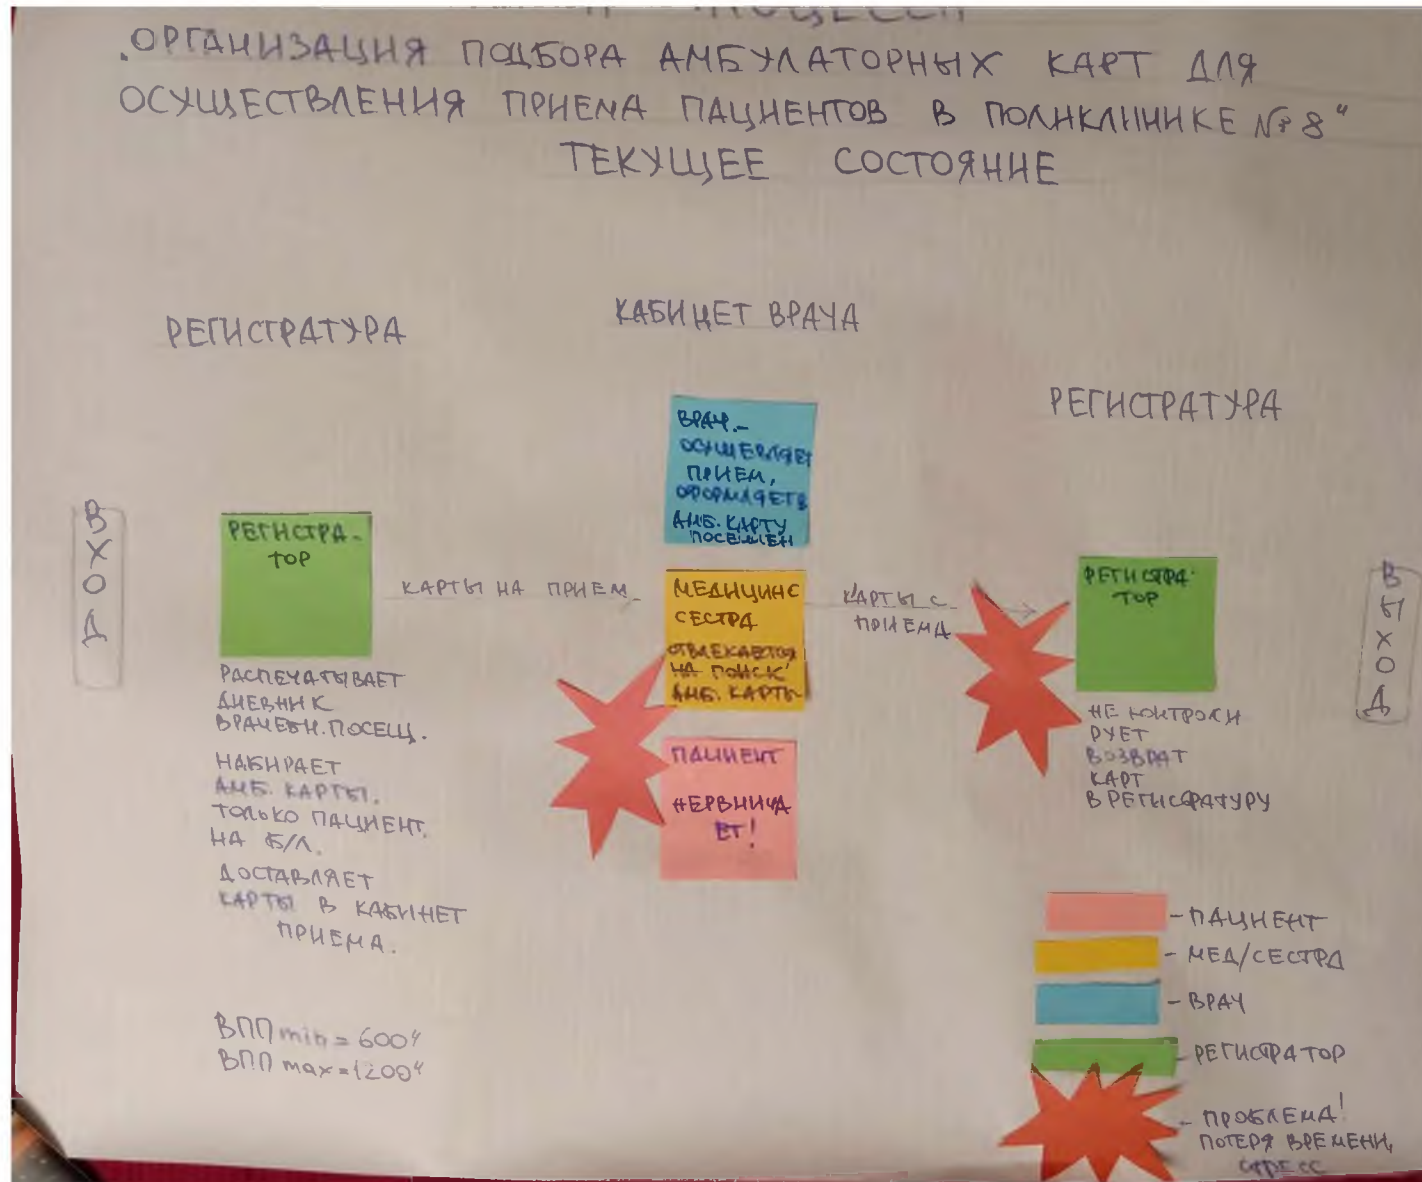 „ОРГАНИЗАЦИЯ ПОДБОРА АМБУЛАТОРНЫХ КАРТ ДЛЯ
ОСУЩЕСТВЛЕНИЯ ПРИЕМА ПАЦИЕНТОВ В ПОЛИКЛИНИКЕ № 8"
ТЕКУЩЕЕ СОСТОЯНИЕ
РЕГИСТРАТУРА
КАБИНЕТ ВРАЧА
РЕГИСТРАТУРА
ВХОД
РЕГИСТРА-
ТОР
РАСПЕЧАТЫВАЕТ
ДНЕВНИК
ВРАЧЕБН. ПОСЕЩ.
НАБИРАЕТ
АМБ. КАРТЫ.
ТОЛЬКО ПАЦИЕНТ.
НА Б/Л.
ДОСТАВЛЯЕТ
КАРТЫ В КАБИНЕТ
ПРИЕМА.
ВПП min = 600"
ВПП max = 1200"
КАРТЫ НА ПРИЕМ
ВРАЧ -
ОСУЩЕВЛЯЕТ
ПРИЕМ,
ОФОРМЛЯЕТ В
АМБ. КАРТУ
ПОСЕЩЕН
МЕДИЦИНС
СЕСТРА
ОТВЛЕКАЕТСЯ
НА ПОИСК
АМБ. КАРТЫ
ПАЦИЕНТ
НЕРВНИЧА
ЕТ!
КАРТЫ С
ПРИЕМА
РЕГИСТРА-
ТОР
НЕ КОНТРОЛИ
РУЕТ
ВОЗВРАТ
КАРТ
В РЕГИСТРАТУРУ
ВЫХОД
- ПАЦИЕНТ
- МЕД/СЕСТРА
- ВРАЧ
- РЕГИСТРАТОР
- ПРОБЛЕМА!
ПОТЕРЯ ВРЕМЕНИ,
СТРЕСС